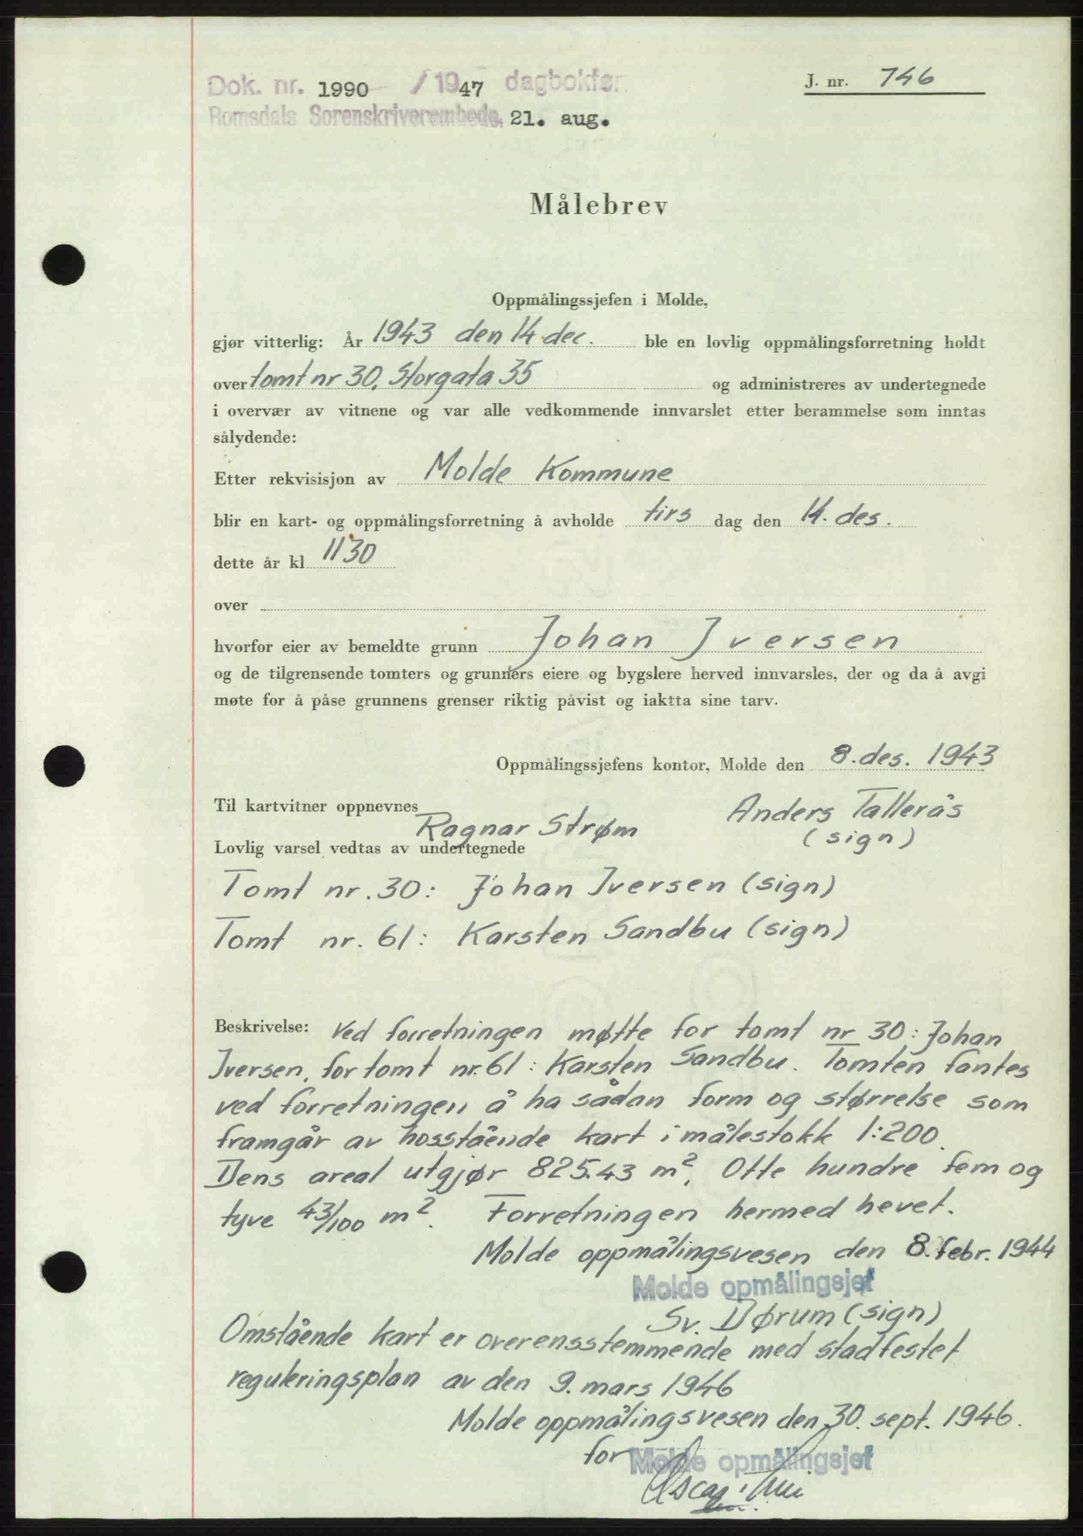 Dok. nr. 1990 / 1947 dagbokfør.
Romsdals Sorenskriverembede, 21. aug.
J. nr. 746
Målebrev
Oppmålingssjefen i Molde,
gjør vitterlig: År 1943 den 14 dec. ble en lovlig oppmålingsforretning holdt
over tomt nr 30, Storgata 35 og administreres av undertegnede
i overvær av vitnene og var alle vedkommende innvarslet etter berammelse som inntas
sålydende:
Etter rekvisisjon av Molde Kommune
blir en kart- og oppmålingsforretning å avholde tirs dag den 14. des.
dette år kl 1130
over
hvorfor eier av bemeldte grunn Johan Iversen
og de tilgrensende tomters og grunners eiere og bygslere herved innvarsles, der og da å avgi
møte for å påse grunnens grenser riktig påvist og iaktta sine tarv.
Oppmålingssjefens kontor, Molde den 8. des. 1943
Til kartvitner oppnevnes Ragnar Strøm Anders Tallerås
(sign)
Lovlig varsel vedtas av undertegnede
Tomt nr. 30: Johan Iversen (sign)
Tomt nr. 61: Karsten Sandbu (sign)
Beskrivelse: Ved forretningen møtte for tomt nr 30: Johan
Iversen, for tomt nr. 61: Karsten Sandbu. Tomten fantes
ved forretningen å ha sådan form og størrelse som
framgår av hosstående kart i målestokk 1:200.
Dens areal utgjør 825.43 m², Otte hundre fem og
tyve 43/100 m². Forretningen hermed hevet.
Molde oppmålingsvesen den 8. febr. 1944
Molde opmålingsjef
Sv. Dørum (sign)
Omstående kart er overensstemmende med stadfestet
reguleringsplan av den 9. mars 1946
Molde oppmålingsvesen den 30. sept. 1946.
for Molde opmålingsjef